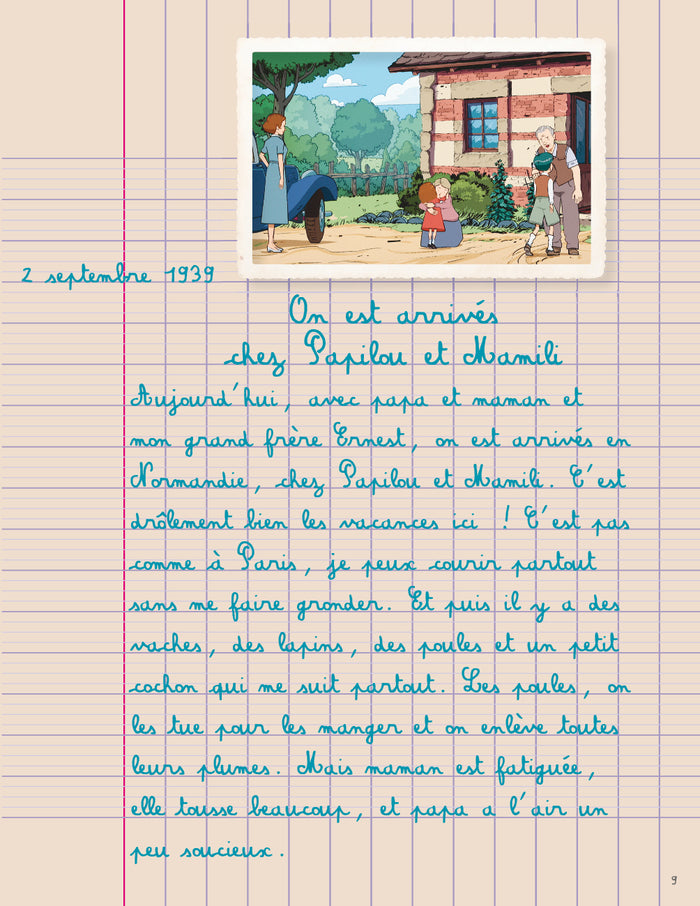 2 septembre 1939
On est arrivés
chez Papilou et Mamili
Aujourd'hui, avec papa et maman et
mon grand frère Ernest, on est arrivés en
Normandie, chez Papilou et Mamili. C'est
drôlement bien les vacances ici ! C'est pas
comme à Paris, je peux courir partout
sans me faire gronder. Et puis il y a des
vaches, des lapins, des poules et un petit
cochon qui me suit partout. Les poules, on
les tue pour les manger et on enlève toutes
leurs plumes. Mais maman est fatiguée,
elle tousse beaucoup, et papa a l'air un
peu soucieux.
9